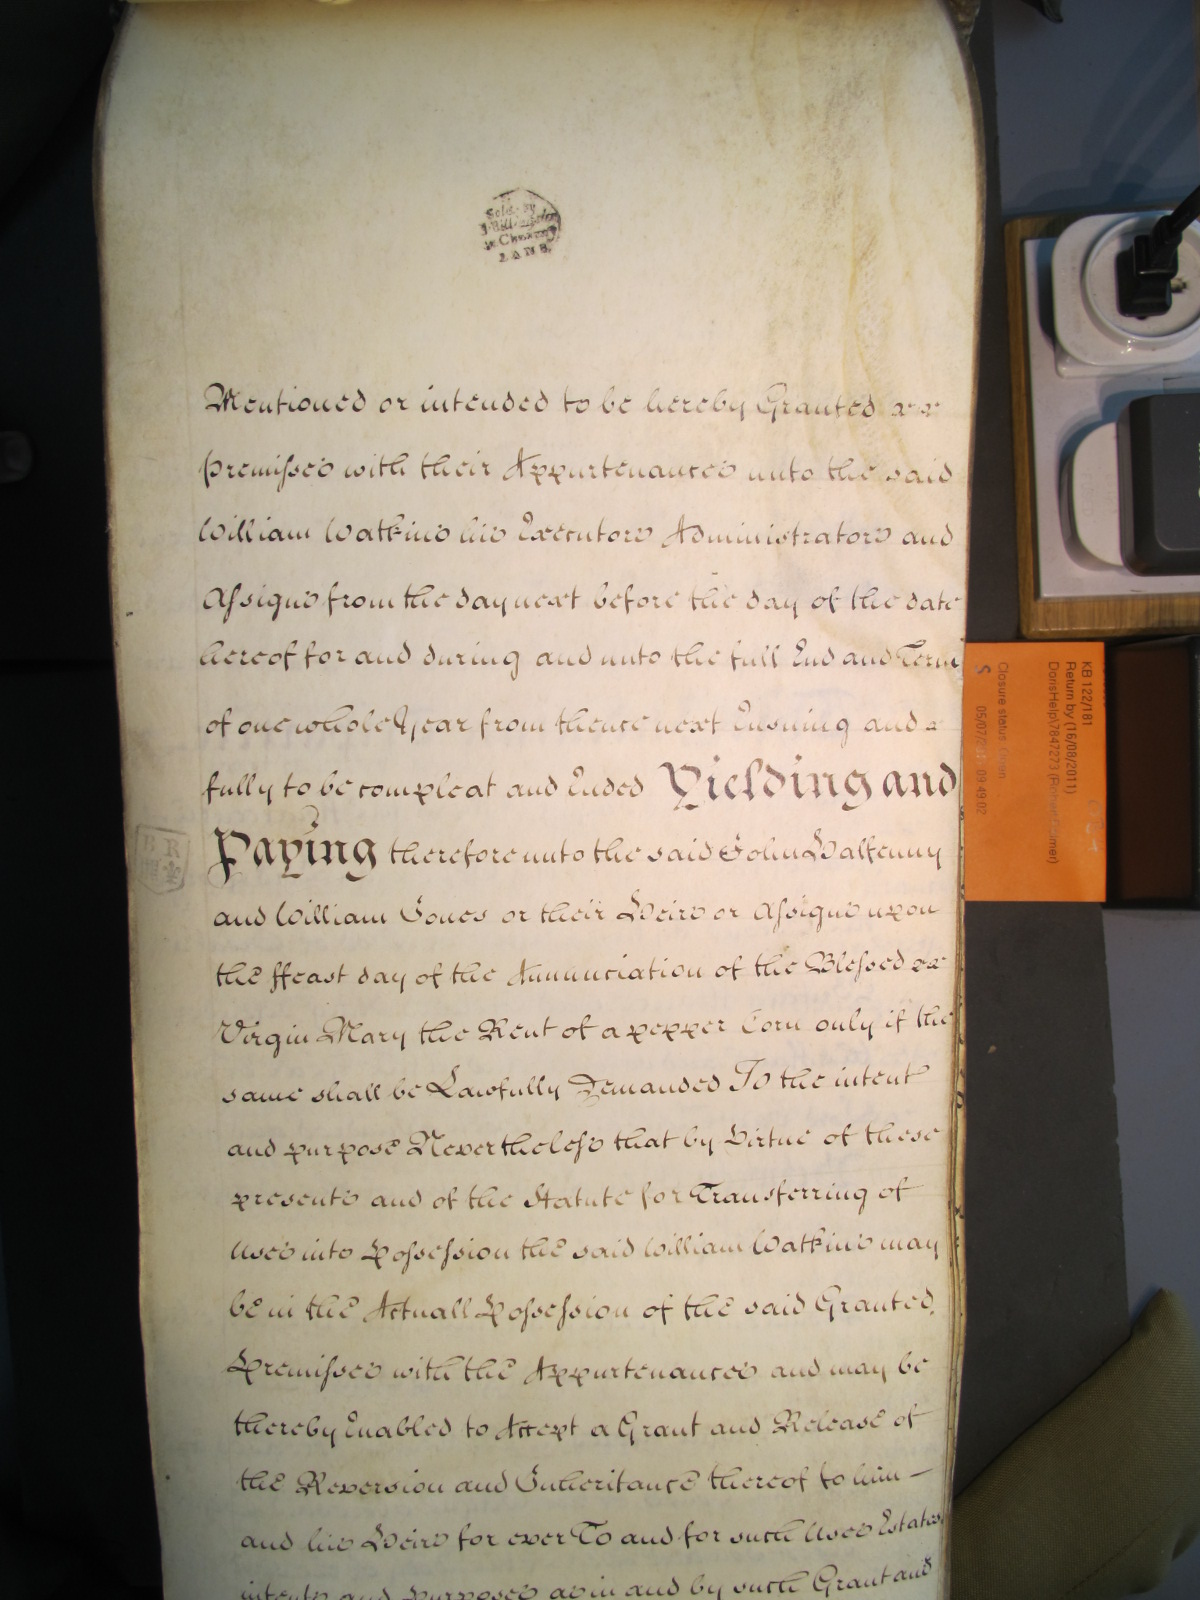 Sold by
in Chancery
LANE
Mentioned or intended to be hereby Granted
premisses with their Appurtenances unto the said
William Watkins his Executors Administrators and
Assigns from the day next before the day of the date
hereof for and during and unto the full End and Term
of one whole Year from thence next Ensuing and
fully to be compleat and Ended Yielding and
Paying therefore unto the said John Walkenny
and William Jones or their Heirs or Assigns upon
the ffeast day of the Annunciation of the Blessed
Virgin Mary the Rent of a pepper Corn only if the
same shall be Lawfully Demanded To the intent
and purpose Nevertheless that by Virtue of these
presents and of the Statute for Transferring of
Uses into Possession the said William Watkins may
be in the Actuall Possession of the said Granted
Premisses with the Appurtenances and may be
thereby Enabled to Accept a Grant and Release of
the Reversion and Inheritance thereof to him
and his Heirs for ever To and for such Uses Estates
intents and purposes as in and by such Grant and
KB 122/181
Return by (16/08/2011)
Closure status: Open
09:49:02